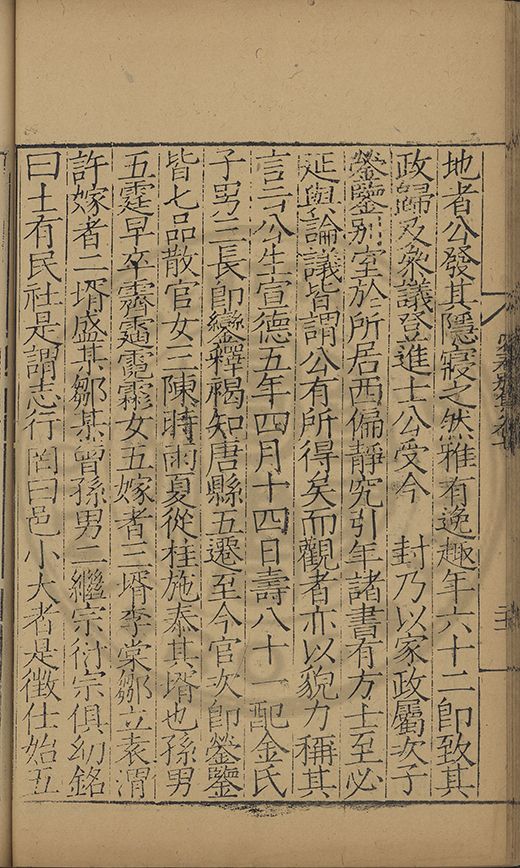 地者公發其隱寢之然雅有逸趣年六十二即致其
政歸及㷡議登進士公受今　封乃以家政屬次子
鎣鑒別室於所居西偏靜究引年諸書有方士至必
延與論議皆謂公有所得矣而觀者亦以貌力稱其
言云公生宣德五年四月十四日壽八十一配金氏
子男三長即䜌釋褐知唐縣五遷至今官次即鎣鑒
皆七品散官女二陳時雨夏從柱施泰其壻也孫男
五霆早卒霽靁霓霦女五嫁者三壻李棠鄒立袁渭
許嫁者二壻盛某鄒某曾孫男二繼宗衍宗俱幼銘
曰土有民社是謂志行罔曰邑小大者是徵仕始五